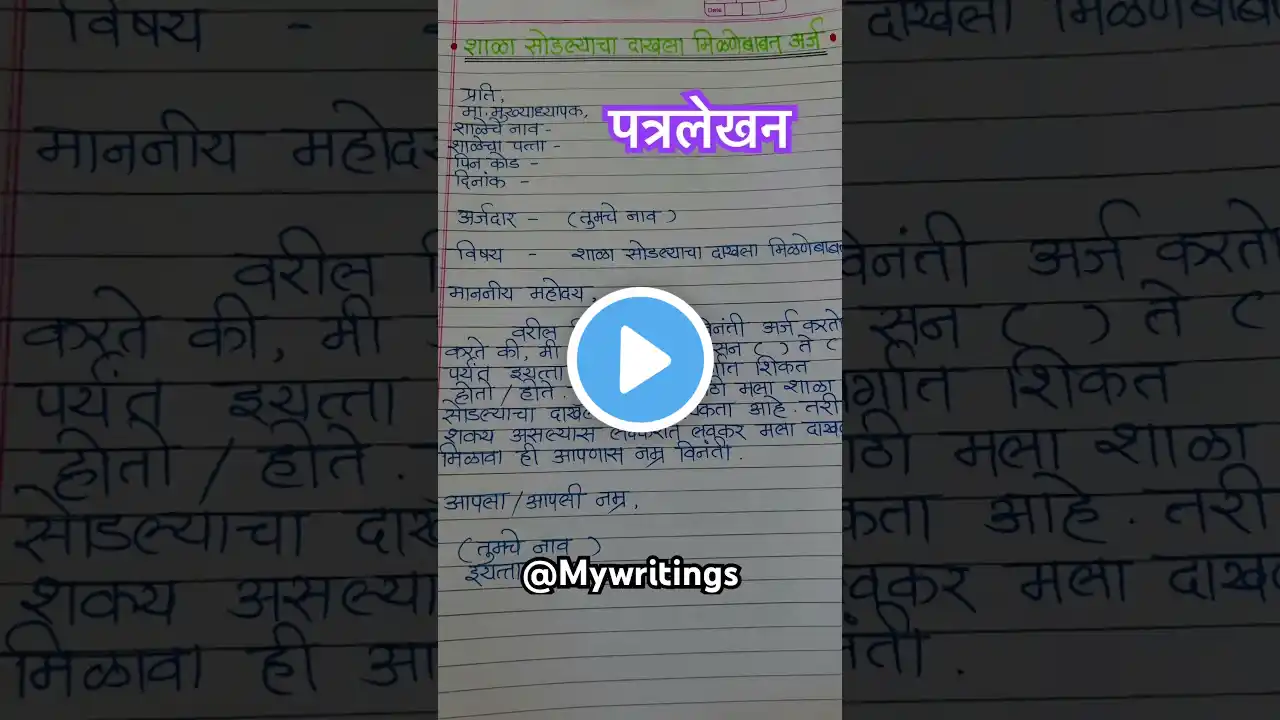 Date
शाळा सोडल्याचा दाखला मिळणेबाबत अर्ज
पत्रलेखन
प्रति,
मा. मुख्याध्यापक,
शाळेचे नाव -
शाळेचा पत्ता -
पिन कोड -
दिनांक -
अर्जदार - (तुमचे नाव)
विषय - शाळा सोडल्याचा दाखला मिळणेबाबत
माननीय महोदय,
वरील विनंती अर्ज करतो
करते की, मी सन ( ) ते (
पर्यंत इयत्ता शिकत
होतो / होते. मला शाळा
सोडल्याचा आहे. तरी
शक्य असल्यास लवकरात लवकर मला
मिळावा ही आपणास नम्र विनंती.
आपला / आपली नम्र,
(तुमचे नाव )
इयत्ता
@Mywritings